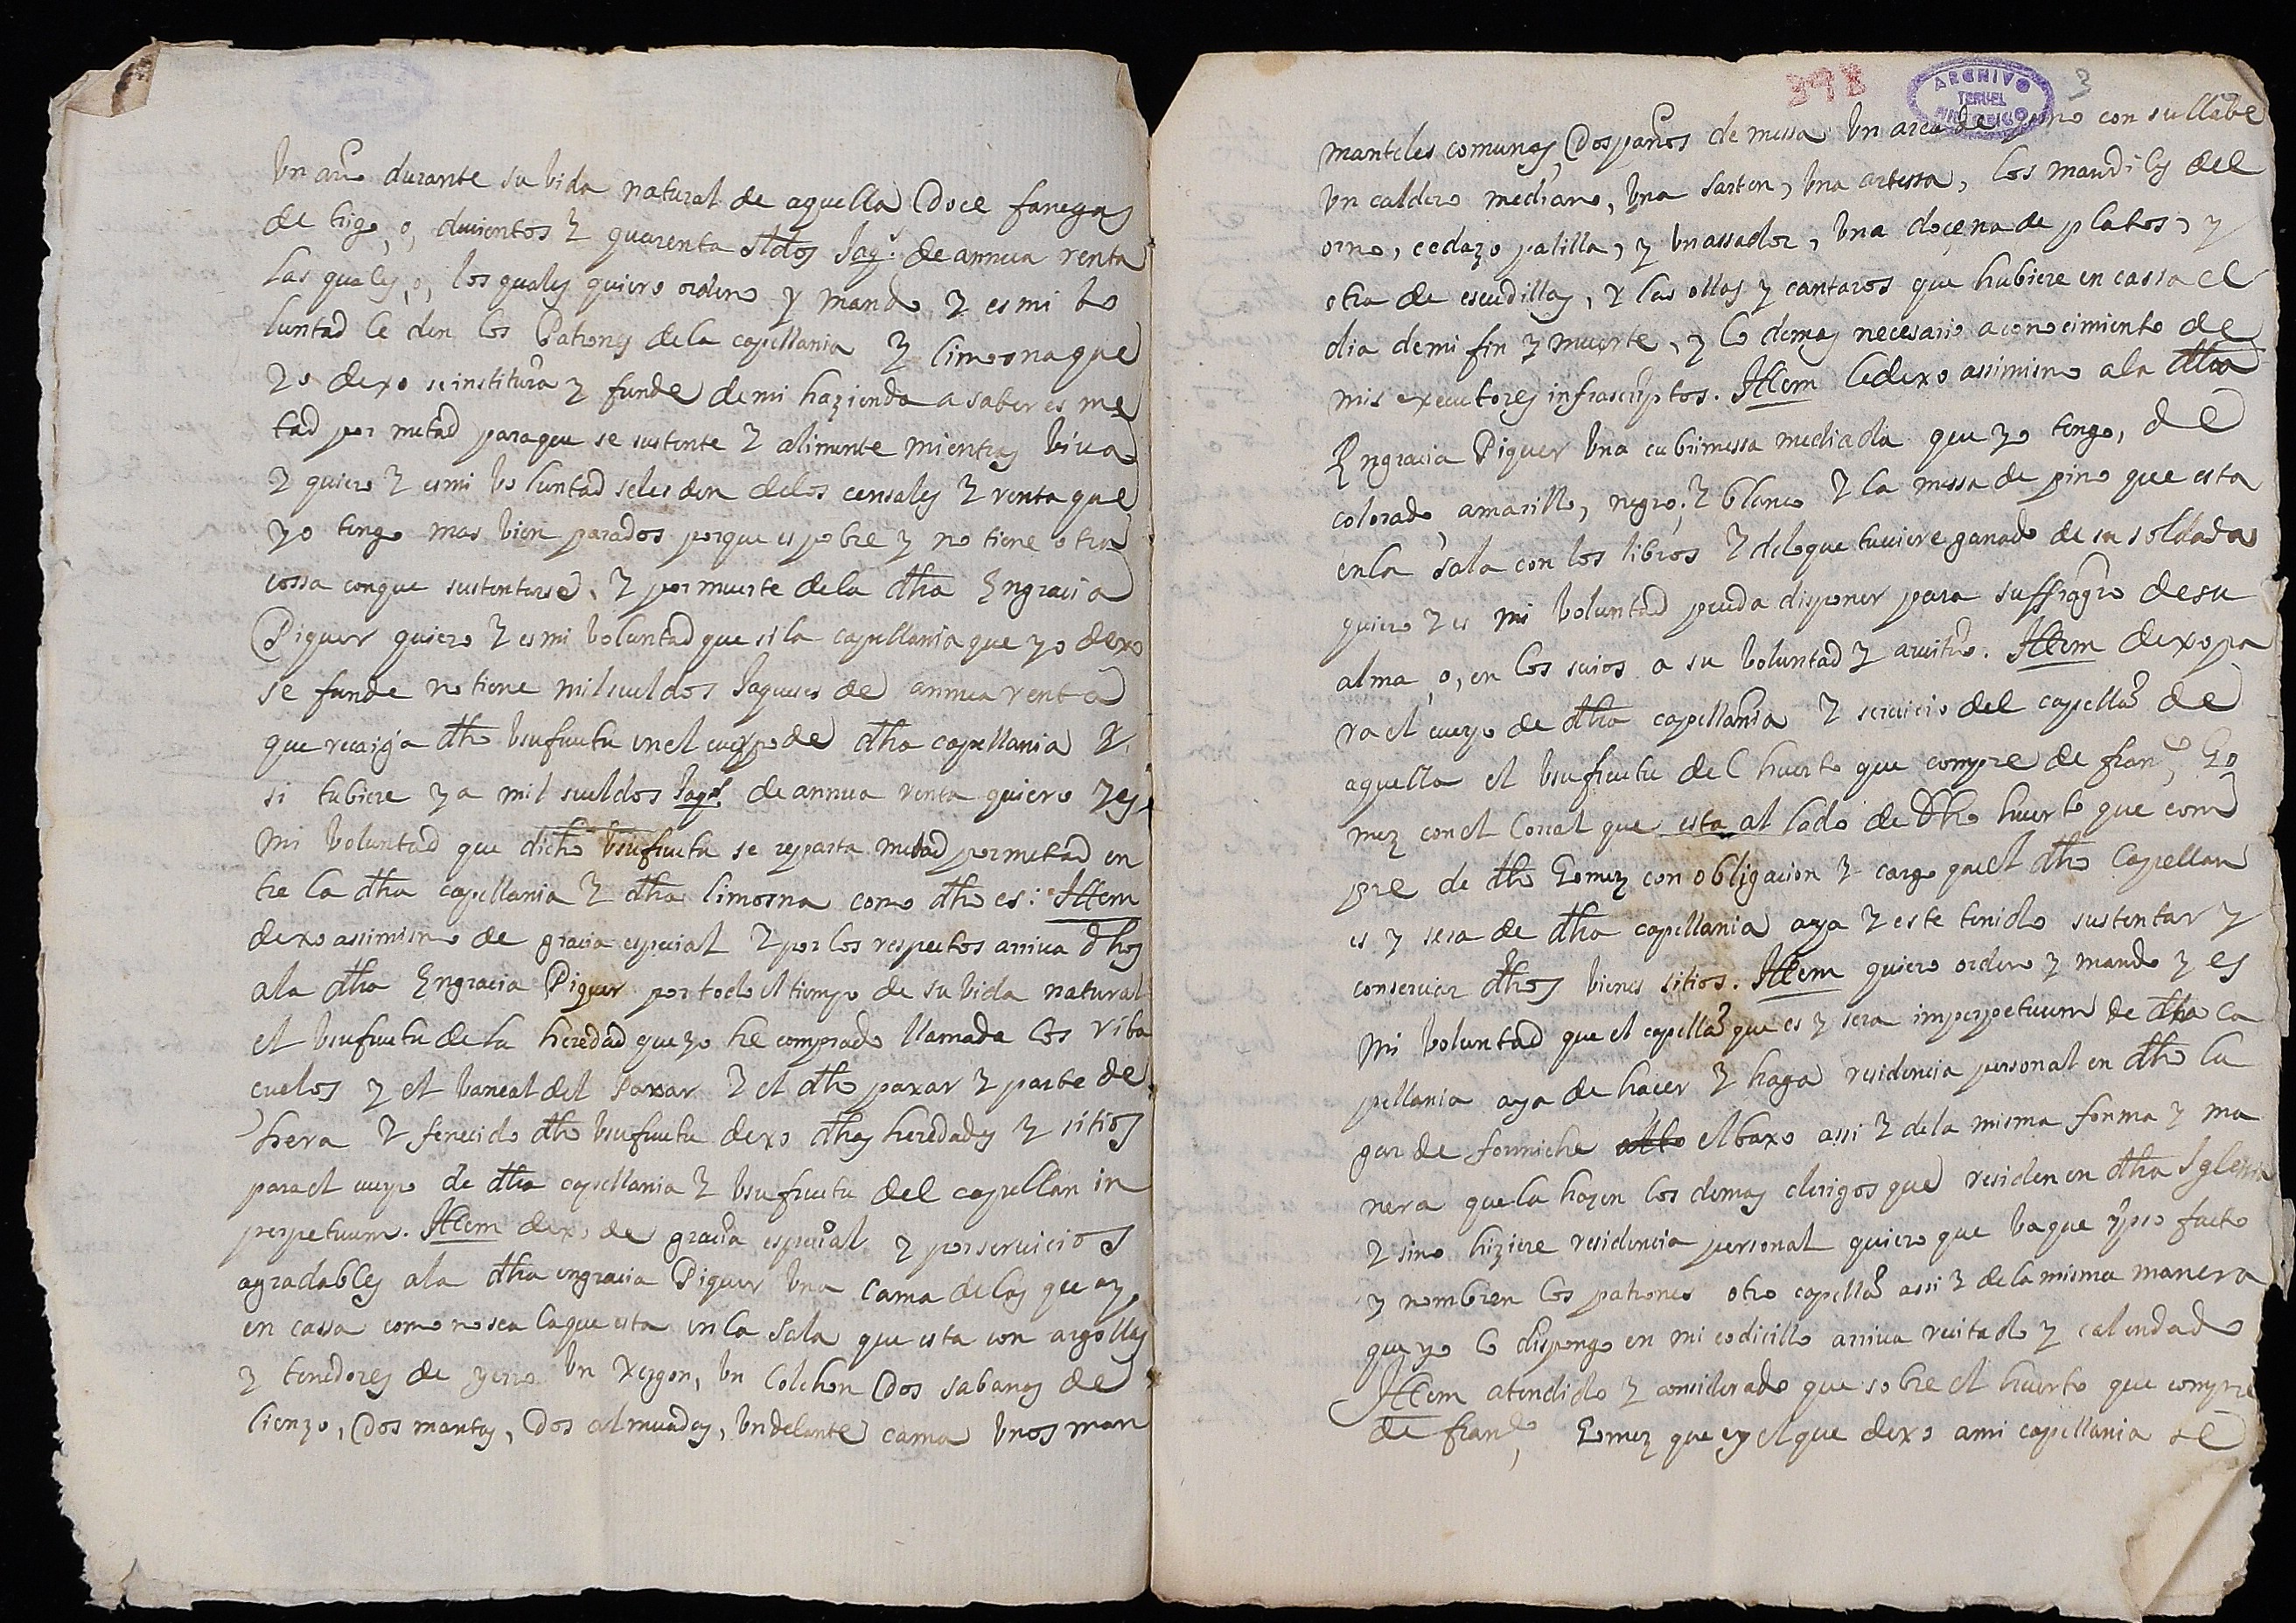 Un año durante su bida natural de aquella Doce fanegas
de trigo, o, ducientos y quarenta sldos Jaqs. de annua renta
las quales, o, los quales quiero ordeno y mando y es mi bo
luntad le den los Patrones de la capellania y limosna que
yo dexo se instituia y funde de mi hazienda a saber es me
tad por metad paraque se sustente y alimente mientras biua
y quiero y es mi boluntad seles den delos censales y renta que
yo tengo mas bien parados porque es pobre y no tiene otra
cossa conque sustentarse. y por muerte dela dha Engracia
Piquer quiero y es mi boluntad que si la capellania que yo dexo
se funde no tiene mil sueldos Jaqueses de annua renta
que recaiga dho usufructu en el cuerpo de dha capellania y.
si tubiere ya mil sueldos Jaqs. de annua renta quiero y es
mi boluntad que dicho usufructu se reparta metad por metad en
tre la dha capellania y dha limosna como dho es: Ittem
dexo assimismo de gracia especial y por los respectos arriua dhos
ala dha Engracia Piquer por todo el tiempo de su bida natural
el usufructu de la heredad que yo he comprado llamada los riba
cuelos y el bancal del Paxar y el dho paxar y parte de
hera y fenecido dho usufructu dexo dhas heredades y sitios
para el cuerpo de dha capellania y usufructu del capellan in
perpetuum. Ittem dexo de gracia especial y por seruicios
agradables ala dha engracia Piquer una cama delas que ay
en cassa como no sea la que esta en la sala que esta con argollas
y tenedores de yerro Un Xergon, Un Colchon Dos sabanas de
lienzo, Dos mantas, Dos almuadas, Un delante cama Unos man
398
ARCHIVO
TERUEL
HISTORICO
3
manteles comunes, Dos paños de messa Un arca de pino con su llabe
Un caldero mediano, Una sarten, Una artessa, los mandiles del
orno, cedazo palilla, y Un assador, Una doçena de platos, y
otra de escudillas, y las ollas y cantaros que hubiere en cassa el
dia de mi fin y muerte, y lo demas necesario a conocimiento de
mis executores infrascriptos. Ittem ledexo assimismo ala dha
Engracia Piquer Una cubrimessa mediada que yo tengo, de
colorado amarillo, negro, y blanco y la messa de pino que esta
enla sala con los libros y deloque tuuiere ganado de su soldada
quiero y es mi boluntad pueda disponer para suffragio de su
alma, o, en los suios a su boluntad y aruitrio. Ittem dexo pa
ra el cuerpo de dha capellania y seruicio del capellan de
aquella el usufructu del huerto que compre de franco, Go
mez con el Corral que esta al lado de Dho huerto que com
pre de dho Gomez con obligacion y cargo que el dho Capellan
es y sera de dha capellania aya y este tenido sustentar y
conseruar dhos bienes sitios. Ittem quiero ordeno y mando y es
mi boluntad que el capellan que es y sera imperpetuum de dha ca
pellania aya de hacer y haga residencia personal en dho lu
gar de formiche alto el baxo assi y dela misma forma y ma
nera que la hazen los demas clerigos que residen en dha Iglessia
y sino hiziere residencia personal quiero que baque ypso facto
y nombren los patrones otro capellan assi y dela misma manera
que yo lo dispongo en mi codicillo arriua recitado y calendado
Ittem atendido y considerado que sobre el huerto que compre
de franco, Gomez que es el que dexo a mi capellania se